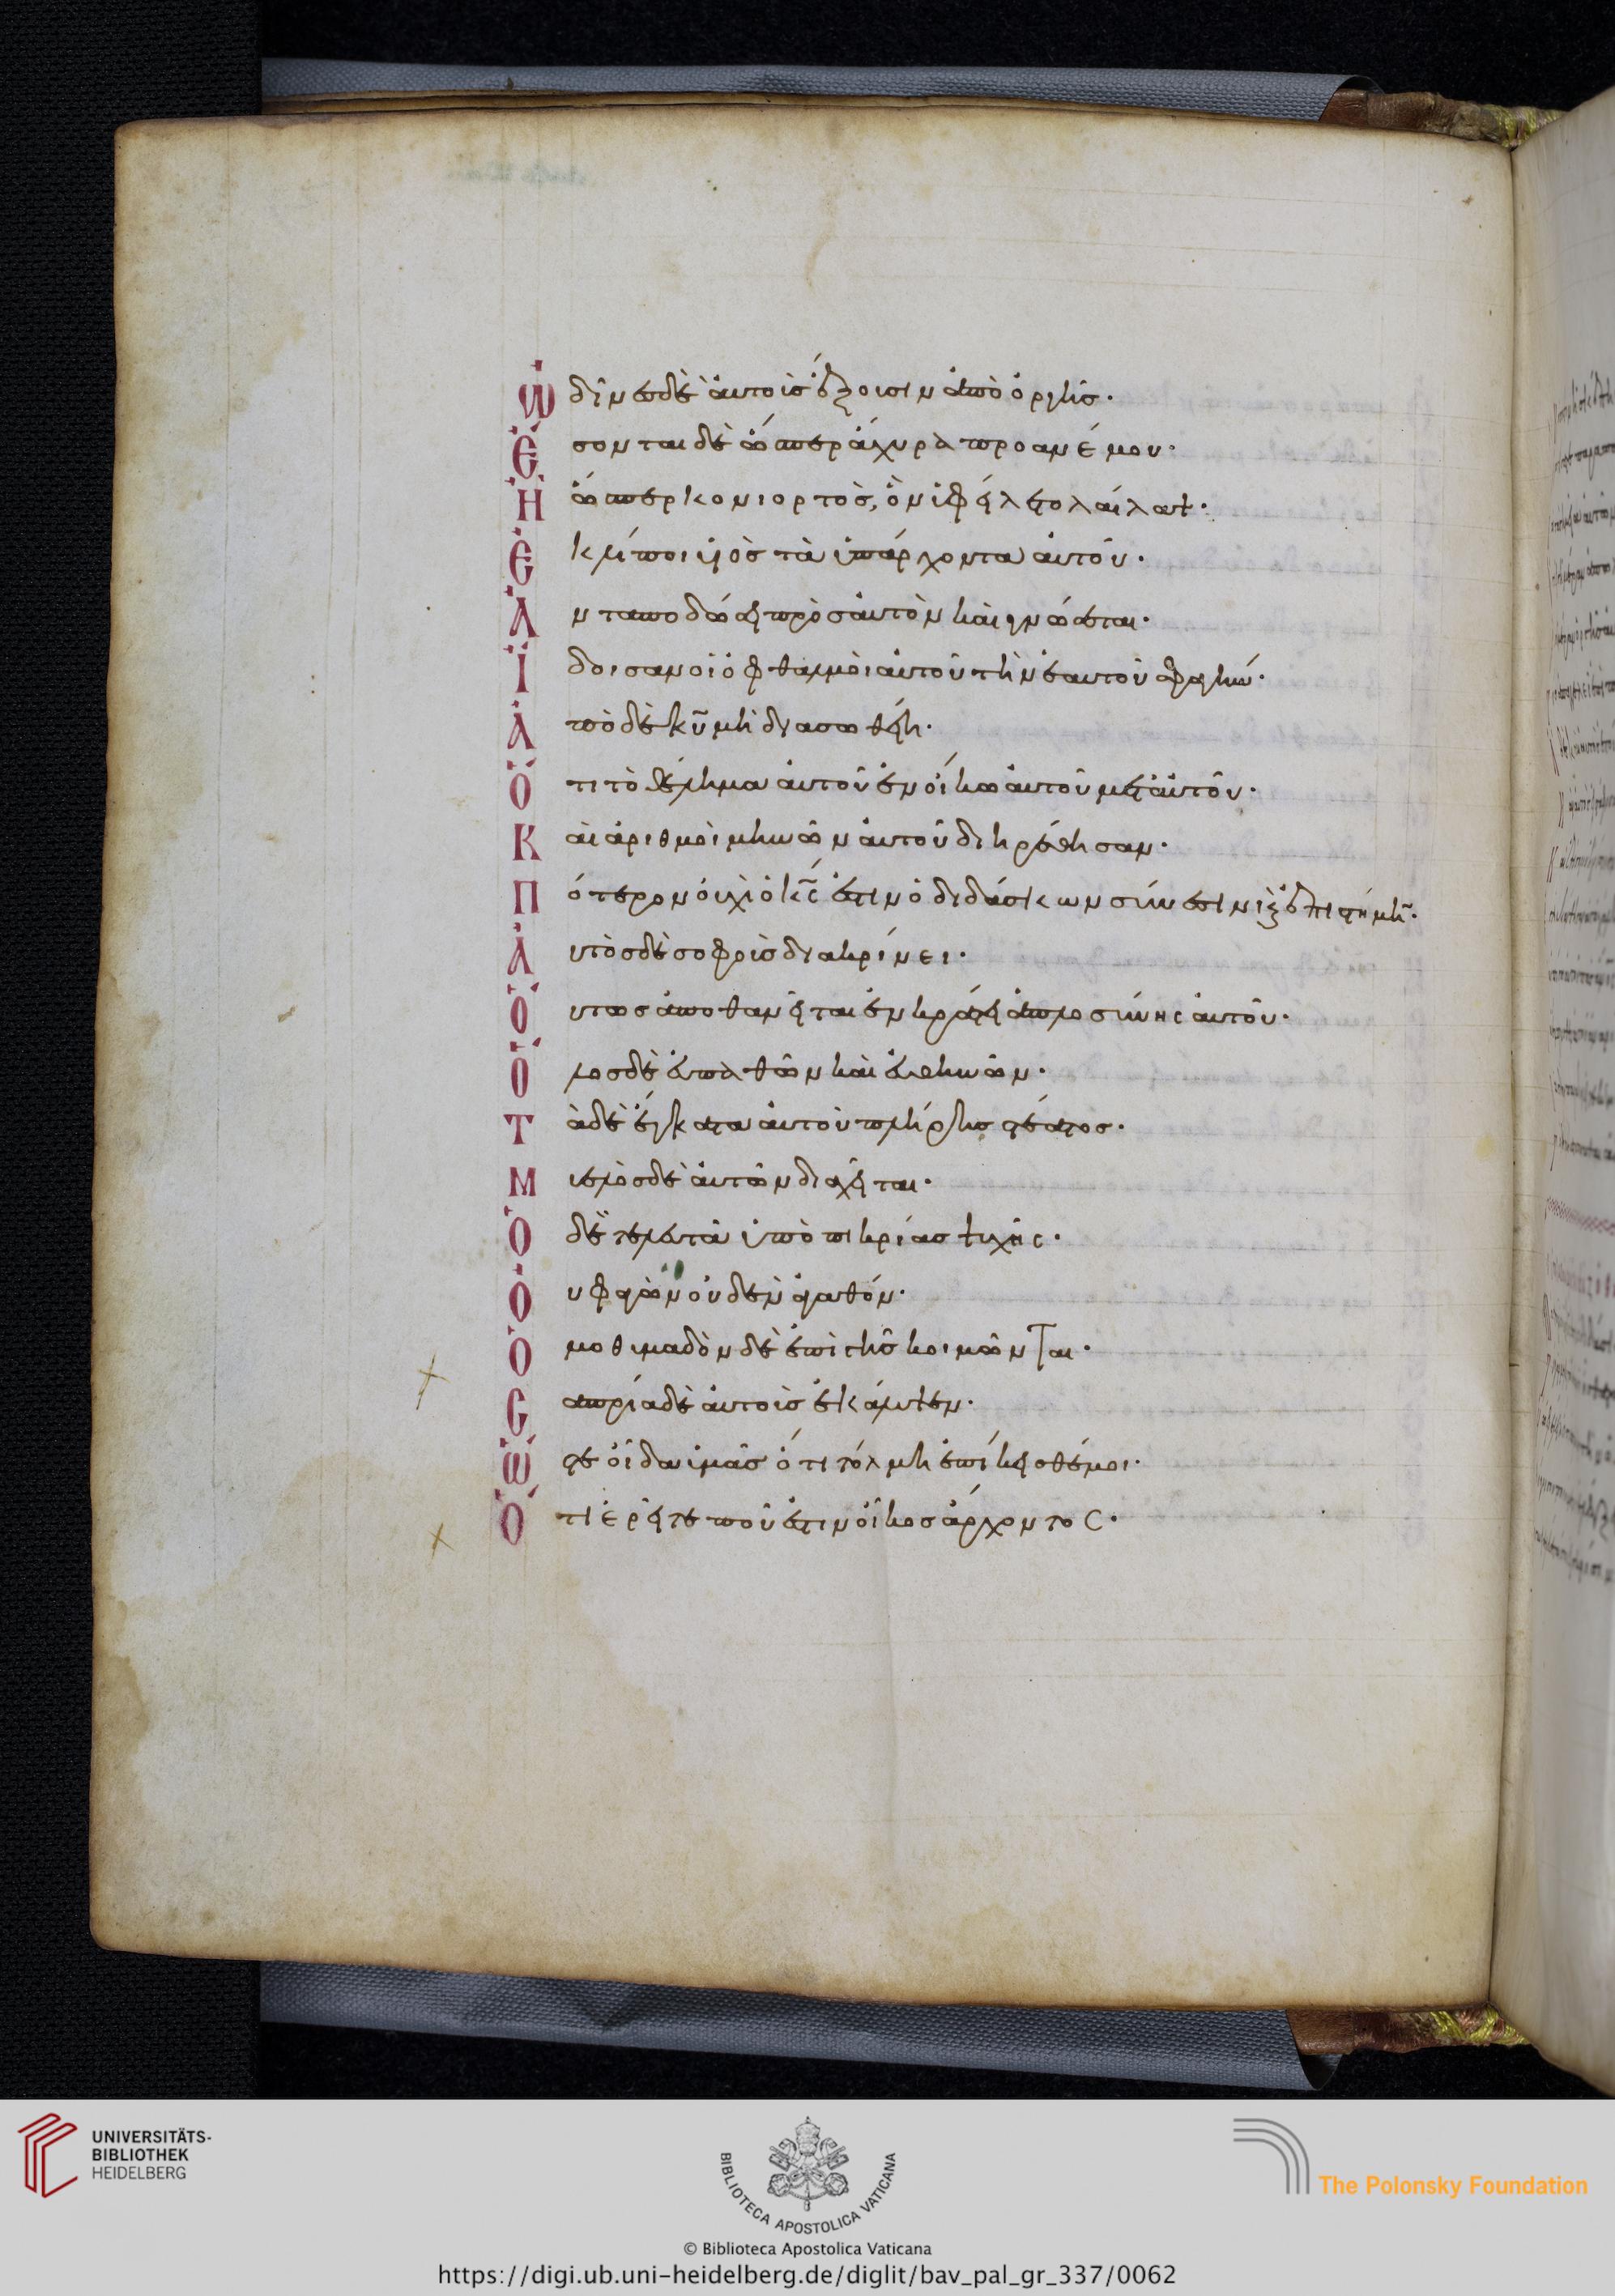 Ὠδῖνες δὲ αὐτοὺς ἕξουσιν ἀπὸ ὀργῆς·
Ἔσονται δὲ ὥσπερ ἄχυρα πρὸ ἀνέμου·
Ἢ ὥσπερ κονιορτὸς, ὃν ὑφείλετο λαίλαψ·
Ἐκλίποι υἱοὺς τὰ ὑπάρχοντα αὐτοῦ·
Ἀνταποδώσει πρὸς αὐτὸν καὶ γνώσεται·
Ἴδοισαν οἱ ὀφθαλμοὶ αὐτοῦ τὴν ἑαυτοῦ σφαγήν·
Ἀπὸ δὲ κ̅υ̅ μὴ διασωθείη·
Ὅτι τὸ θέλημα αὐτοῦ ἐν οἴκω αὐτοῦ μετ αὐτοῦ·
Καὶ ἀριθμοὶ μηνῶν αὐτοῦ διηρέθησαν·
Πότερον οὐχὶ ὁ κ̅ς̅ ἐστιν ὁ διδάσκων σύνεσιν καὶ ἐπιστήμην·
Αὐτὸς δὲ σοφοὺς διακρίνει·
Οὗτος ἀποθανεῖται ἐν κράτει ἁπλοσύνης αὐτοῦ·
Ὅλος δὲ εὐπαθῶν καὶ εὐθηνῶν·
Τὰ δὲ ἔγκατα αὐτοῦ πλήρης στέατος·
Μυελὸς δὲ αὐτῶν διαχεῖται·
Ὁ δὲ τελευτᾶ ὑπὸ πικρίας ψυχῆς·
Οὐ φαγὼν οὐδὲν ἀγαθόν·
Ὁμοθυμαδὸν δὲ ἐπὶ γῆς κοιμῶνται·
Σαπρία δὲ αὐτοὺς ἐκάλυψεν·
Ὥστε οἶδα ὑμᾶς ὅτι τόλμη ἐπίκεισθέ μοι·
Ὅτι ἐρεῖτε ποῦ ἐστιν οἶκος ἄρχοντος·
UNIVERSITÄTS-
BIBLIOTHEK
HEIDELBERG
BIBLIOTECA APOSTOLICA VATICANA
The Polonsky Foundation
© Biblioteca Apostolica Vaticana
https://digi.ub.uni-heidelberg.de/diglit/bav_pal_gr_337/0062